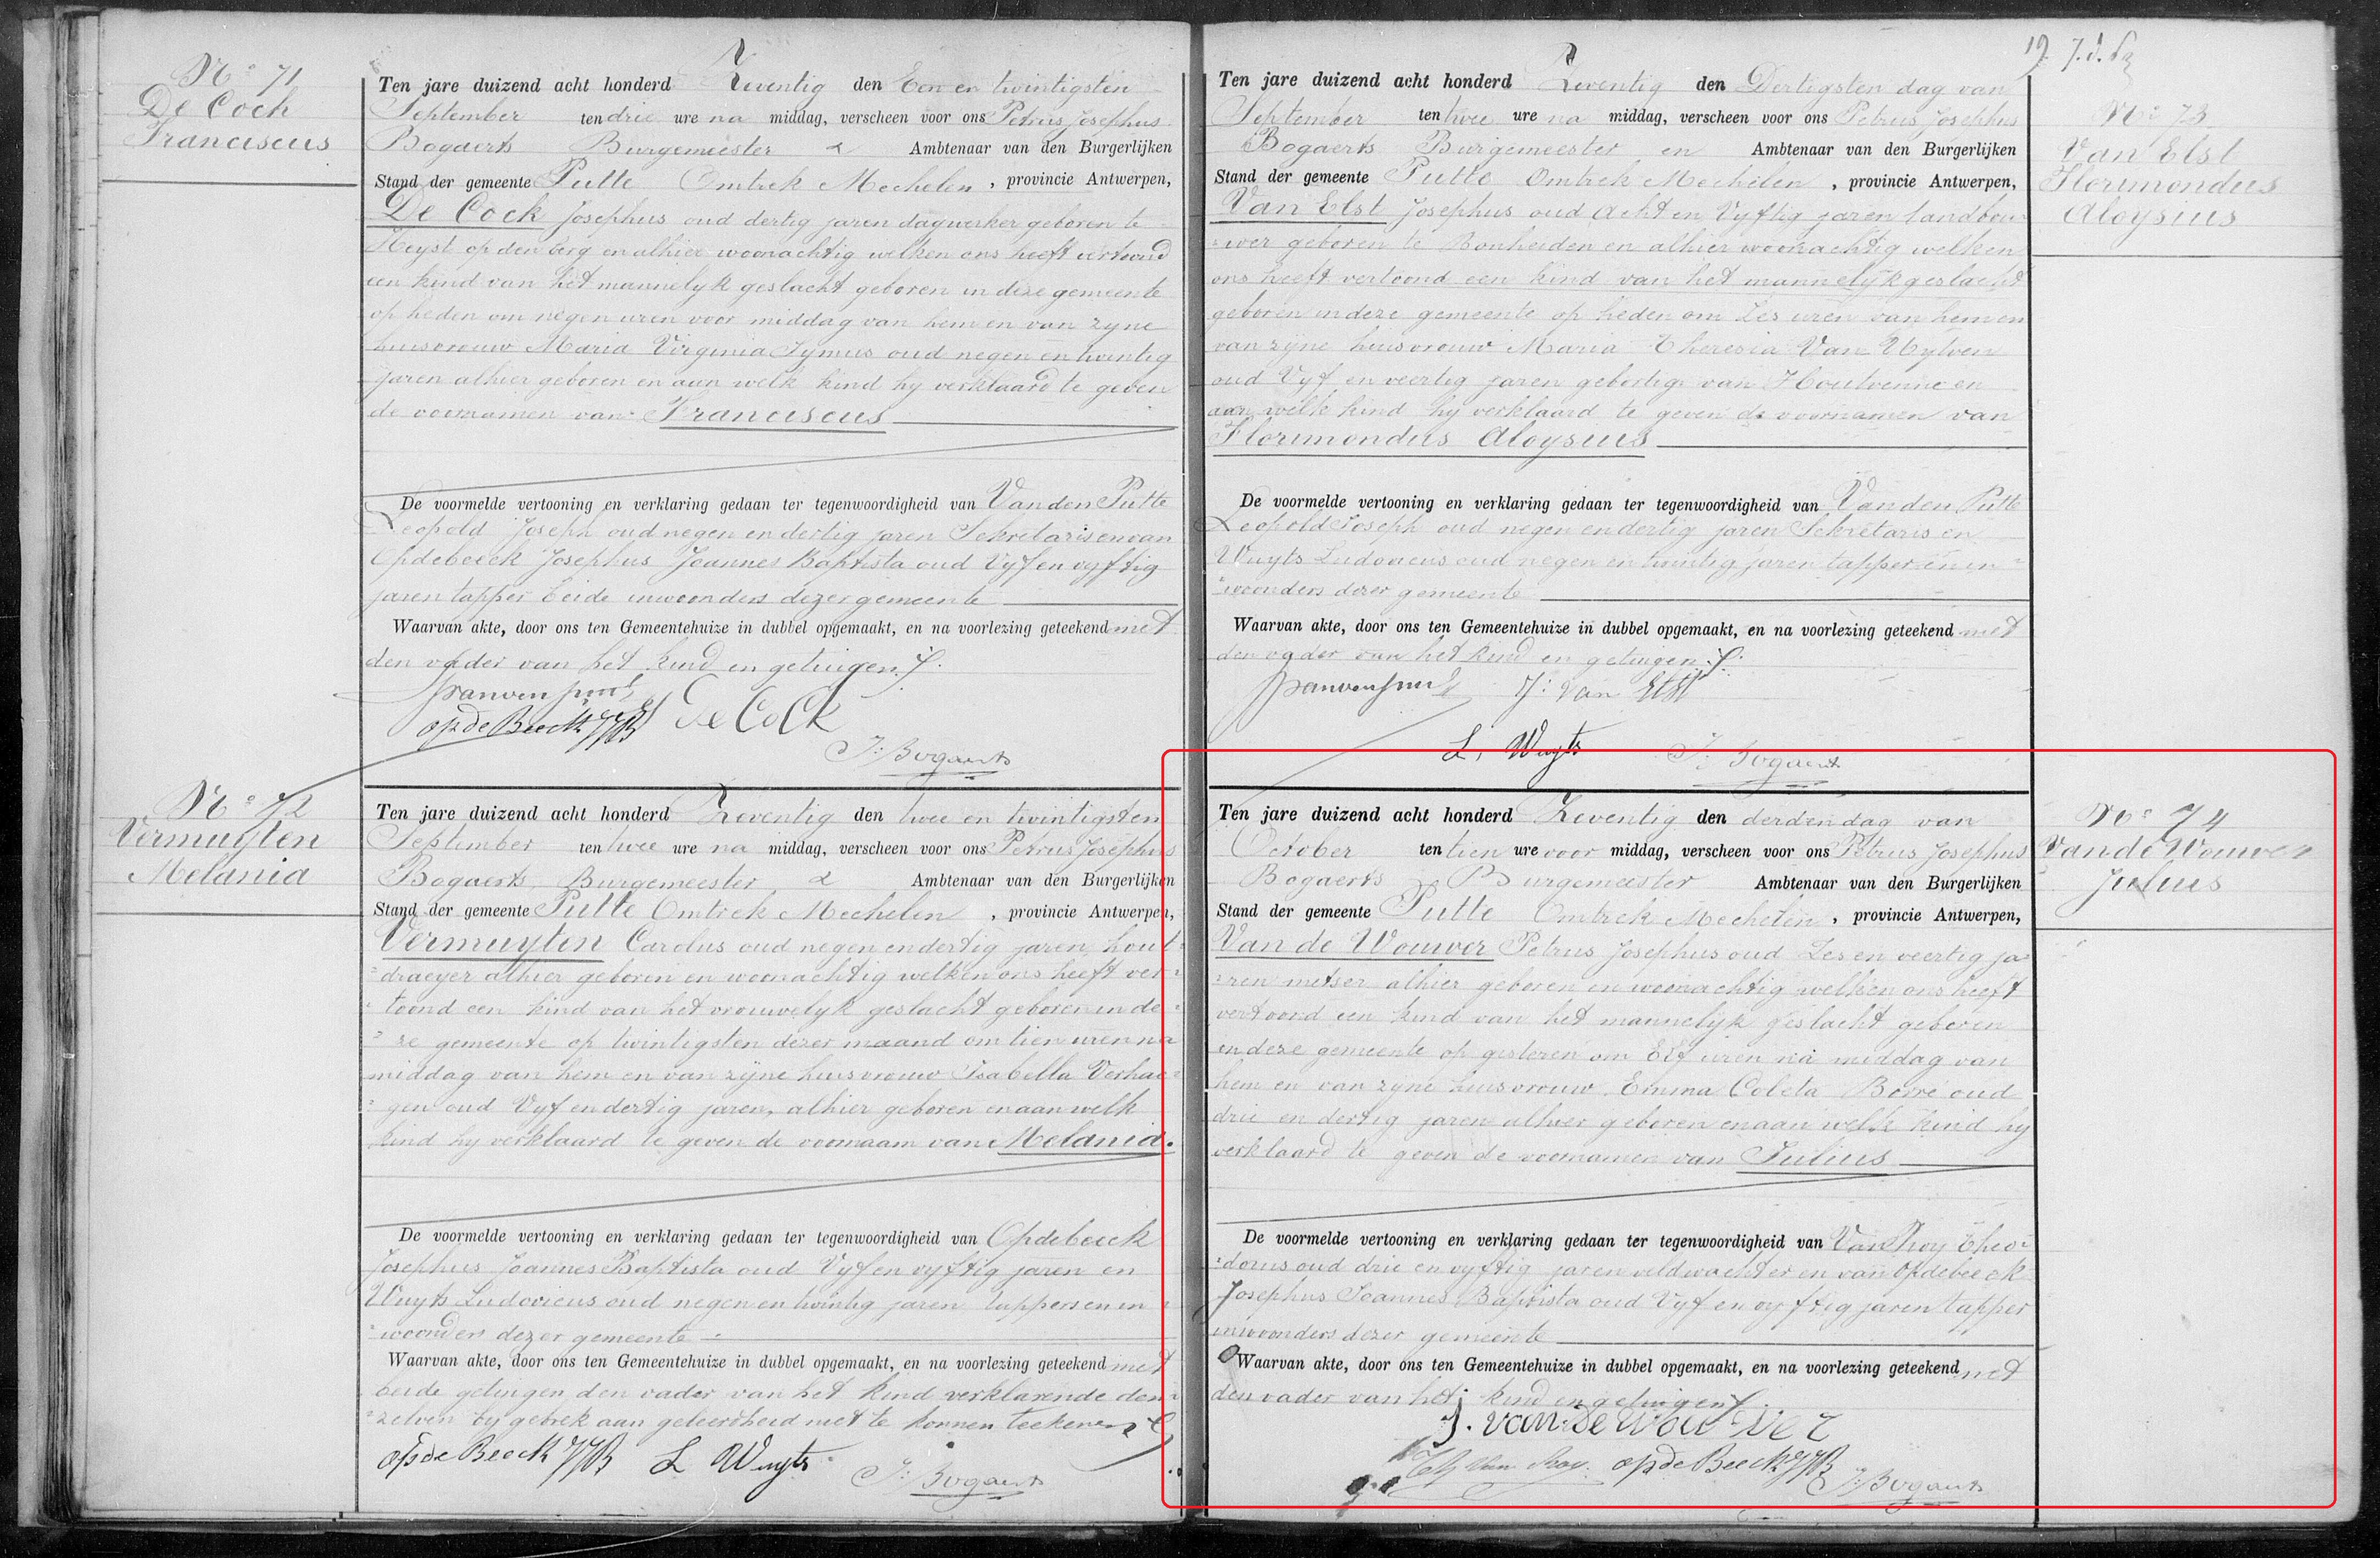 No 71
De Cock
Franciscus
Ten jare duizend acht honderd Zeventig den Een en twintigsten
September ten drie ure na middag, verscheen voor ons Petrus Josephus
Bogaerts Burgemeester & Ambtenaar van den Burgerlijken
Stand der gemeente Putte Omtrek Mechelen, provincie Antwerpen,
De Cock Josephus oud dertig jaren dagwerker geboren te
Heyst op den berg en alhier woonachtig welken ons heeft vertoond
een kind van het mannelyk geslacht geboren in deze gemeente
op heden om negen uren voor middag van hem en van zyne
huisvrouw Maria Virginia Symus oud negen en twintig
jaren alhier geboren en aan welk kind hy verklaard te geven
de voornamen van Franciscus
De voormelde vertooning en verklaring gedaan ter tegenwoordigheid van Van den Putte
Leopold Joseph oud negen en dertig jaren Sekretaris en van
Opdebeeck Josephus Joannes Baptista oud Vyf en vyftig
jaren tapper beide inwoonders dezer gemeente
Waarvan akte, door ons ten Gemeentehuize in dubbel opgemaakt, en na voorlezing geteekend met
den vader van het kind en getuigen
op de Beeck JJB De Cock
J: Bogaerts
No 72
Vermuyten
Melania
Ten jare duizend acht honderd Zeventig den twee en twintigsten
September ten twee ure na middag, verscheen voor ons Petrus Josephus
Bogaerts Burgemeester & Ambtenaar van den Burgerlijken
Stand der gemeente Putte Omtrek Mechelen, provincie Antwerpen,
Vermuyten Carolus oud negen en dertig jaren hout=
=draeyer alhier geboren en woonachtig welken ons heeft ver=
=toond een kind van het vrouwelyk geslacht geboren in de=
=ze gemeente op twintigsten dezer maand om tien uren na
middag van hem en van zyne huisvrouw Isabella Verhae=
=gen oud Vyf en dertig jaren, alhier geboren en aan welk
kind hy verklaard te geven de voornaam van Melania.
De voormelde vertooning en verklaring gedaan ter tegenwoordigheid van Opdebeeck
Josephus Joannes Baptista oud Vyf en vyftig jaren en
Wuyts Ludovicus oud negen en twintig jaren tappers en in=
=woonders dezer gemeente
Waarvan akte, door ons ten Gemeentehuize in dubbel opgemaakt, en na voorlezing geteekend met
beide getuigen, den vader van het kind verklarende den=
=zelven by gebrek aan geleerdheid niet te konnen teekenen
op de Beeck JJB L Wuyts J: Bogaerts
19
No 73
Van Elst
Florimondus
Aloysius
Ten jare duizend acht honderd Zeventig den Dertigsten dag van
September ten twee ure na middag, verscheen voor ons Petrus Josephus
Bogaerts Burgemeester en Ambtenaar van den Burgerlijken
Stand der gemeente Putte Omtrek Mechelen, provincie Antwerpen,
Van Elst Josephus oud Acht en Vyftig jaren landbou=
=wer geboren te Bonheiden en alhier woonachtig welken
ons heeft vertoond een kind van het mannelyk geslacht
geboren in deze gemeente op heden om Zes uren van hem en
van zyne huisvrouw Maria Theresia Van Uytven
oud Vyf en veertig jaren geboortig van Houtvenne en
aan welk kind hy verklaard te geven de voornamen van
Florimondus Aloysius
De voormelde vertooning en verklaring gedaan ter tegenwoordigheid van Van den Putte
Leopold Joseph oud negen en dertig jaren Sekretaris en
Wuyts Ludovicus oud negen en twintig jaren tapper en in=
=woonders dezer gemeente
Waarvan akte, door ons ten Gemeentehuize in dubbel opgemaakt, en na voorlezing geteekend met
den vader van het kind en getuigen
J: Van Elst
L. Wuyts J: Bogaerts
No 74
Van de Wouwer
Julius
Ten jare duizend acht honderd Zeventig den derden dag van
October ten tien ure voor middag, verscheen voor ons Petrus Josephus
Bogaerts Burgemeester Ambtenaar van den Burgerlijken
Stand der gemeente Putte Omtrek Mechelen, provincie Antwerpen,
Van de Wouwer Petrus Josephus oud Zes en veertig ja=
=ren metser alhier geboren en woonachtig welken ons heeft
vertoond een kind van het mannelyk geslacht geboren
in deze gemeente op gisteren om Elf uren na middag van
hem en van zyne huisvrouw Emma Coleta Borré oud
drie en dertig jaren alhier geboren en aan welk kind hy
verklaard te geven de voornamen van Julius
De voormelde vertooning en verklaring gedaan ter tegenwoordigheid van Van Roy Theo=
=dorus oud drie en vyftig jaren veldwachter en van Opdebeeck
Josephus Joannes Baptista oud Vyf en vyftig jaren tapper
inwoonders dezer gemeente
Waarvan akte, door ons ten Gemeentehuize in dubbel opgemaakt, en na voorlezing geteekend met
den vader van het kind en getuigen
J. van de wouwer
Th Van Roy. op de Beeck JJB J: Bogaerts